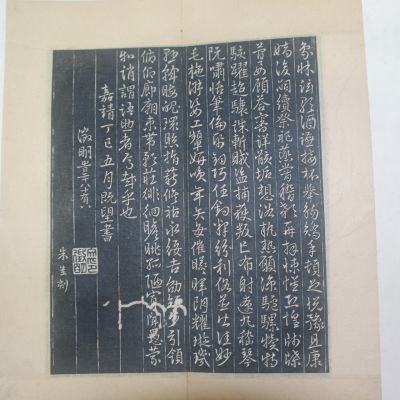 象床弦歌酒讌接杯舉觴矯手頓足悅豫且康
嫡後嗣續祭祀蒸嘗稽顙再拜悚懼恐惶牋牒
簡要顧答審詳骸垢想浴執熱願涼驢騾犢特
駭躍超驤誅斬賊盜捕獲叛亡布射遼丸嵇琴
阮嘯恬筆倫紙鈞巧任釣釋紛利俗並皆佳妙
毛施淑姿工顰妍笑年矢每催曦暉朗耀璇璣
懸斡晦魄環照指薪修祜永綏吉劭矩步引領
俯仰廊廟束帶矜莊徘徊瞻眺孤陋寡聞愚蒙
等誚謂語助者焉哉乎也
嘉靖丁巳五月既望書
徵明時年八十有八